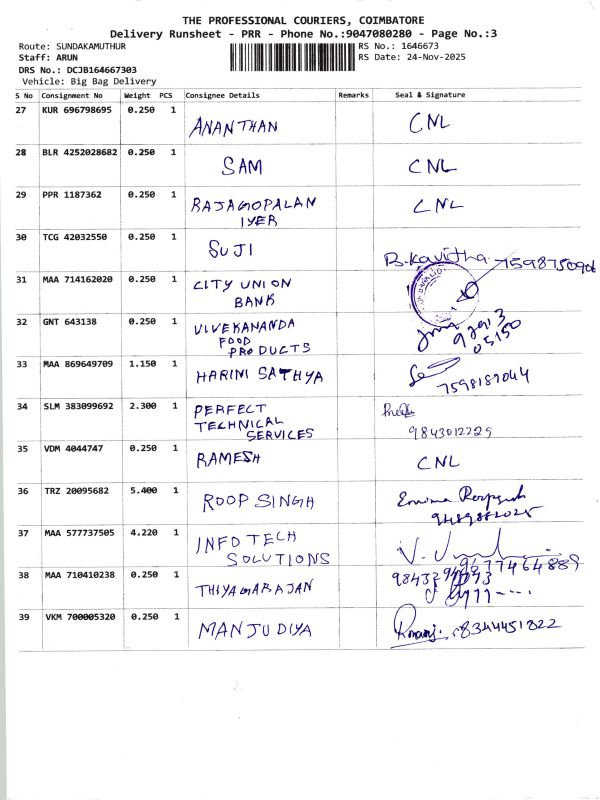 THE PROFESSIONAL COURIERS, COIMBATORE
Delivery Runsheet - PRR - Phone No.:9047080280 - Page No.:3
Route: SUNDAKAMUTHUR RS No.: 1646673
Staff: ARUN RS Date: 24-Nov-2025
DRS No.: DCJB164667303
Vehicle: Big Bag Delivery
S No Consignment No Weight PCS Consignee Details Remarks Seal & Signature
27 KUR 696798695 0.250 1 ANANTHAN CNL
28 BLR 4252028682 0.250 1 SAM CNL
29 PPR 1187362 0.250 1 RAJAGOPALAN CNL
IYER
30 TCG 42032550 0.250 1 SUJI B.Kavitha 7598750906
31 MAA 714162020 0.250 1 CITY UNION
BANK
32 GNT 643138 0.250 1 VIVEKANANDA
FOOD
PRODUCTS 05150
33 MAA 869649709 1.150 1 HARINI SATHYA 7598189044
34 SLM 383099692 2.300 1 PERFECT
TECHNICAL
SERVICES 9843012229
35 VDM 4044747 0.250 1 RAMESH CNL
36 TRZ 20095682 5.400 1 ROOP SINGH
9489882025
37 MAA 577737505 4.220 1 INFO TECH
SOLUTIONS 9677464889
38 MAA 710410238 0.250 1 THIYAGARAJAN
39 VKM 700005320 0.250 1 MANJU DIYA 8344451822